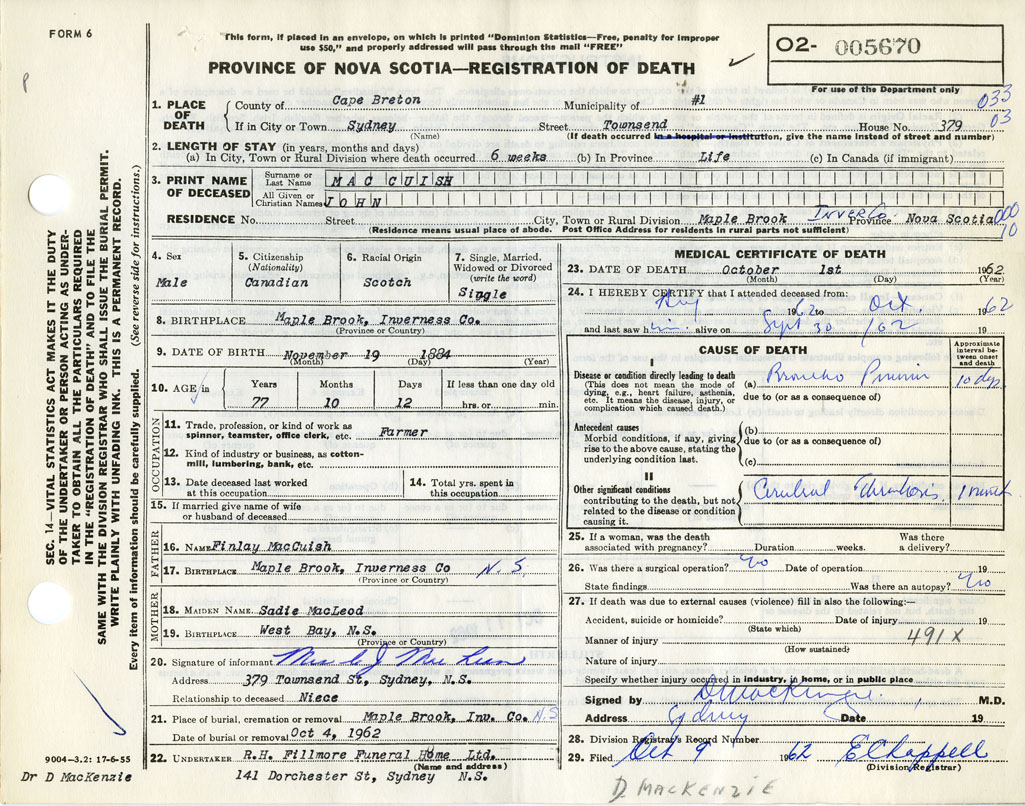 FORM 6
This form, if placed in an envelope, on which is printed "Dominion Statistics—Free, penalty for improper
use $50," and properly addressed will pass through the mail "FREE"
PROVINCE OF NOVA SCOTIA—REGISTRATION OF DEATH
02- 005670
For use of the Department only
033
03
1. PLACE OF DEATH
County of Cape Breton Municipality of #1
If in City or Town Sydney Street Townsend House No. 379
(Name) (If death occurred in a hospital or institution, give the name instead of street and number)
2. LENGTH OF STAY (in years, months and days)
(a) In City, Town or Rural Division where death occurred 6 weeks (b) In Province Life (c) In Canada (if immigrant)
3. PRINT NAME OF DECEASED
Surname or Last Name MAC CUISH
All Given or Christian Names JOHN
RESIDENCE No. Street City, Town or Rural Division Maple Brook Inver Co Province Nova Scotia 000
70
(Residence means usual place of abode. Post Office Address for residents in rural parts not sufficient)
4. Sex
Male
5. Citizenship
(Nationality)
Canadian
6. Racial Origin
Scotch
7. Single, Married,
Widowed or Divorced
(write the word)
Siggle
8. BIRTHPLACE Maple Brook, Inverness Co.
(Province or Country)
9. DATE OF BIRTH November 19 1884
(Month) (Day) (Year)
10. AGE in
Years Months Days If less than one day old
77 10 12 hrs. or min.
OCCUPATION
11. Trade, profession, or kind of work as
spinner, teamster, office clerk, etc. Farmer
12. Kind of industry or business, as cotton-
mill, lumbering, bank, etc.
13. Date deceased last worked
at this occupation
14. Total yrs. spent in
this occupation
15. If married give name of wife
or husband of deceased
FATHER
16. NAME Finlay MacCuish
17. BIRTHPLACE Maple Brook, Inverness Co N.S.
(Province or Country)
MOTHER
18. MAIDEN NAME Sadie MacLeod
19. BIRTHPLACE West Bay, N.S.
(Province or Country)
20. Signature of informant Mrs C J Mac Lean
Address 379 Townsend St, Sydney, N.S.
Relationship to deceased Niece
21. Place of burial, cremation or removal Maple Brook, Inv. Co. N.S
Date of burial or removal Oct 4, 1962
22. UNDERTAKER R.H. Fillmore Funeral Home Ltd.
(Name and address)
141 Dorchester St, Sydney N.S.
MEDICAL CERTIFICATE OF DEATH
23. DATE OF DEATH October 1st 1962
(Month) (Day) (Year)
24. I HEREBY CERTIFY that I attended deceased from:
1962 to Oct 1962
and last saw him alive on Sept 30 /62 19
CAUSE OF DEATH
Approximate
interval be-
tween onset
and death
I
Disease or condition directly leading to death
(This does not mean the mode of
dying, e.g., heart failure, asthenia,
etc. It means the disease, injury, or
complication which caused death.)
(a) Broncho Pneumonia 10 dys
due to (or as a consequence of)
Antecedent causes
Morbid conditions, if any, giving
rise to the above cause, stating the
underlying condition last.
(b)
due to (or as a consequence of)
(c)
II
Other significant conditions
contributing to the death, but not
related to the disease or condition
causing it.
Cerebral Thrombosis 1 month
25. If a woman, was the death
associated with pregnancy? Duration weeks. Was there
a delivery?
26. Was there a surgical operation? No Date of operation 19
State findings Was there an autopsy? No
27. If death was due to external causes (violence) fill in also the following:—
Accident, suicide or homicide? Date of injury 19
(State which)
Manner of injury 491 X
(How sustained)
Nature of injury
Specify whether injury occurred in industry, in home, or in public place
Signed by D MacKenzie M.D.
Address Sydney Date 19
28. Division Registrar's Record Number
29. Filed Oct 9 1962 E Chappell
(Division Registrar)
D. MACKENZIE
SEC. 14—VITAL STATISTICS ACT MAKES IT THE DUTY
OF THE UNDERTAKER OR PERSON ACTING AS UNDER-
TAKER TO OBTAIN ALL THE PARTICULARS REQUIRED
IN THE "REGISTRATION OF DEATH" AND TO FILE THE
SAME WITH THE DIVISION REGISTRAR WHO SHALL ISSUE THE BURIAL PERMIT.
WRITE PLAINLY WITH UNFADING INK. THIS IS A PERMANENT RECORD.
Every item of information should be carefully supplied. (See reverse side for instructions.)
9004—3.2: 17-6-55
Dr D MacKenzie